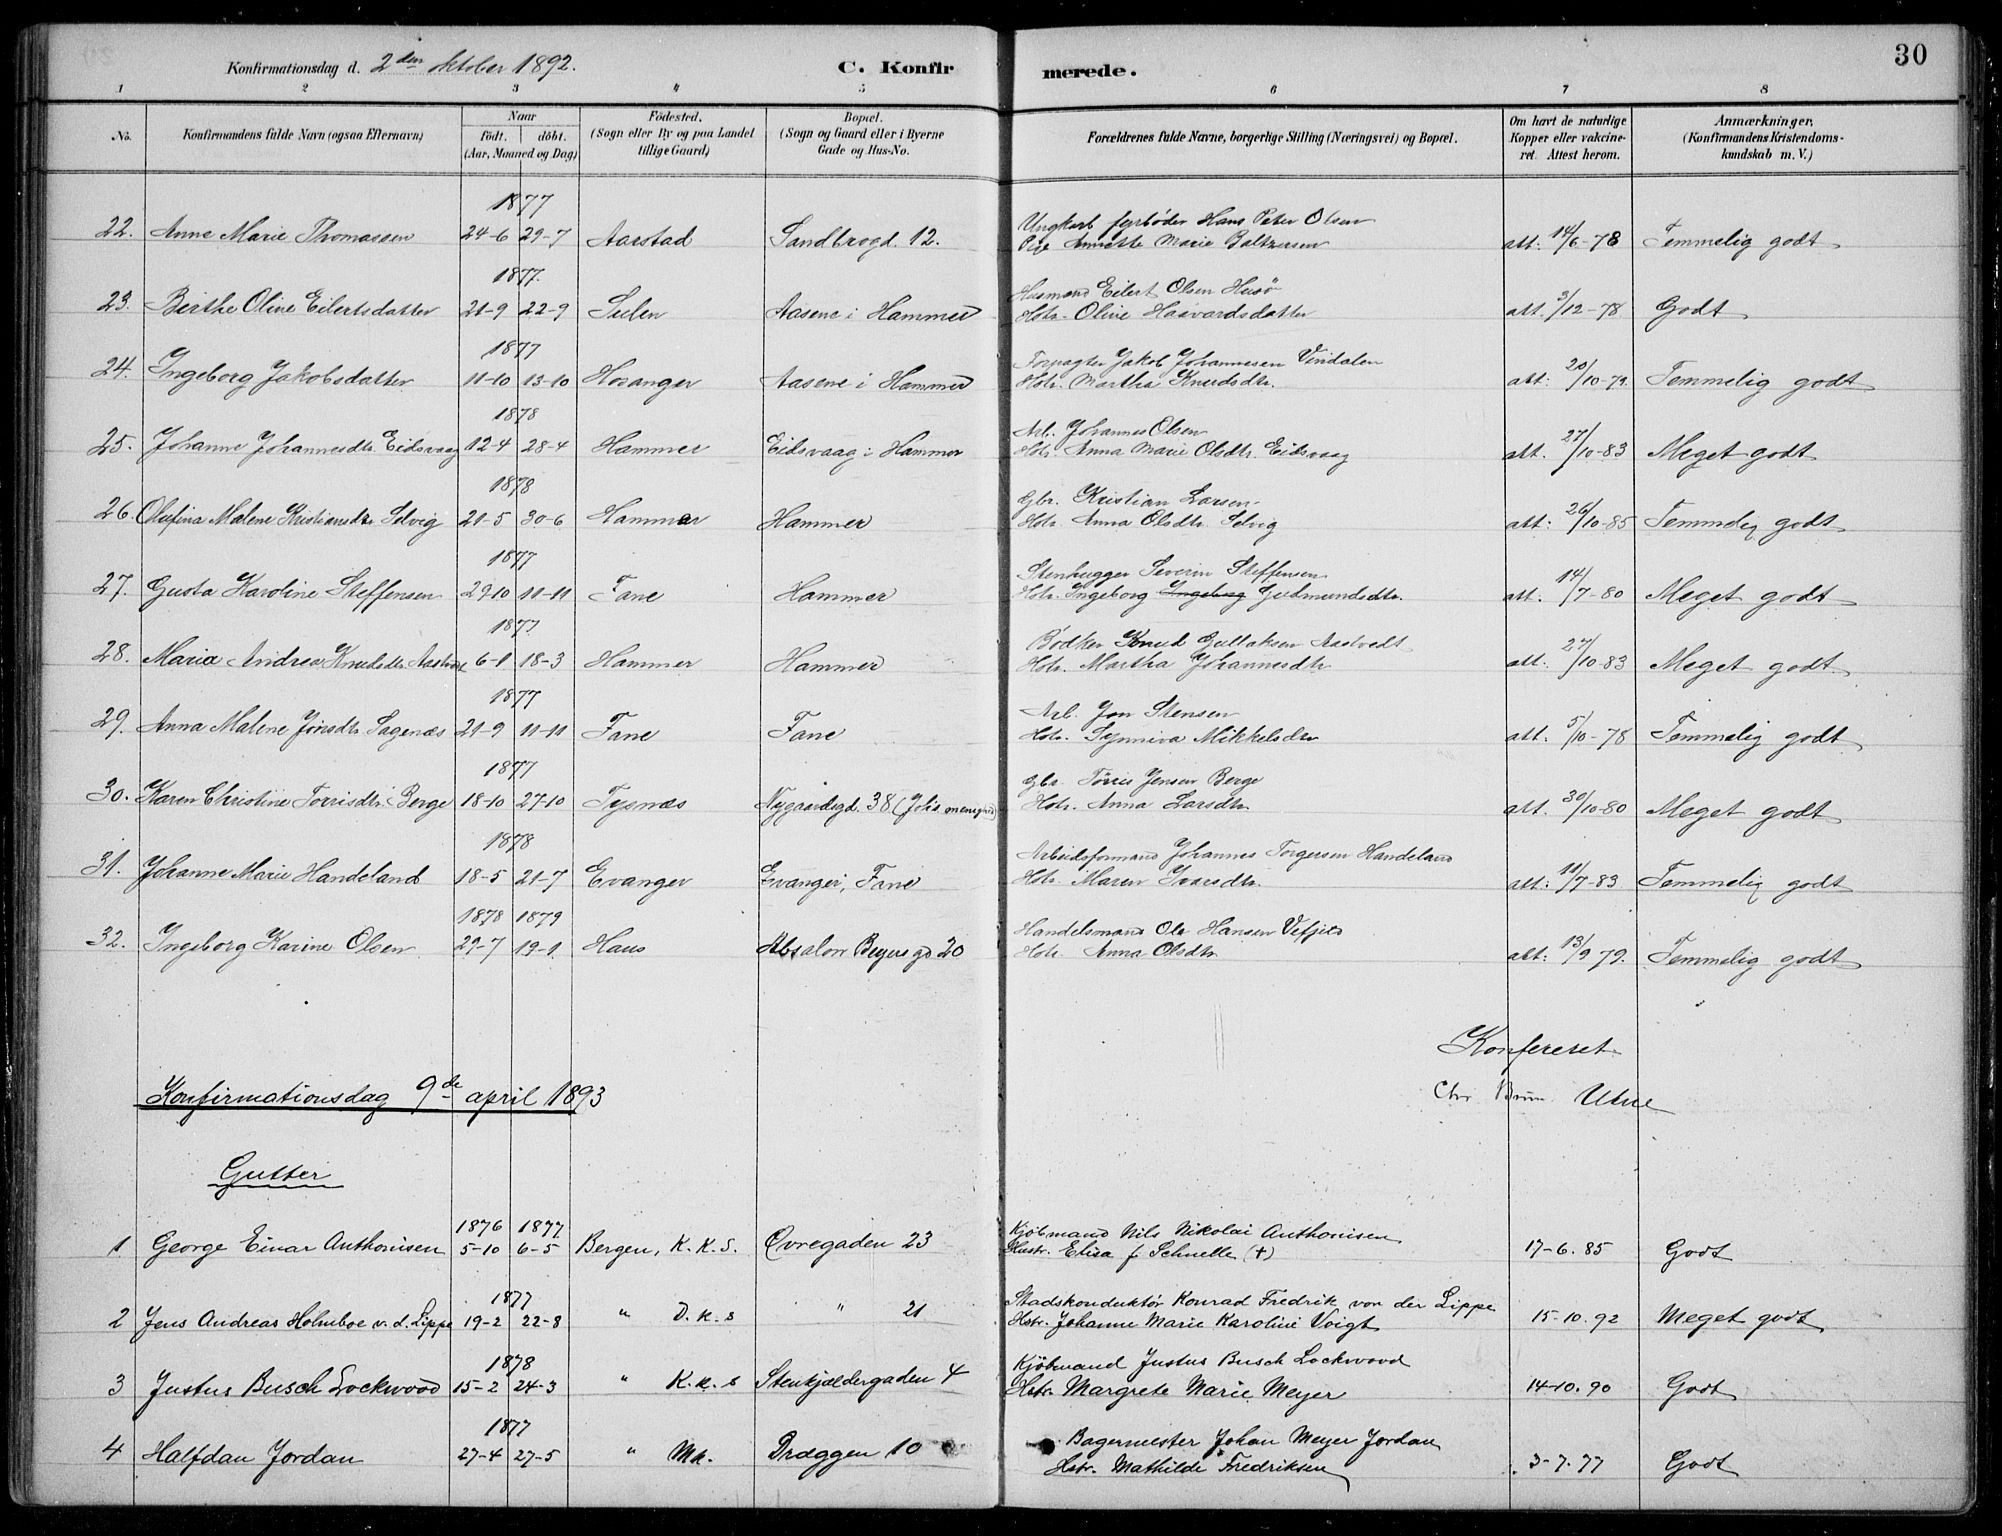 30
Konfirmationsdag d. 2den oktober 1892. C. Konfir merede.
1 2 3 4 5 6 7 8
No. Konfirmandens fulde Navn (ogsaa Efternavn) Naar födt. döbt. (Aar, Maaned og Dag) Födested. (Sogn eller By og paa Landet tillige Gaard) Bopæl. (Sogn og Gaard eller i Byerne Gade og Hus-No. Forældrenes fulde Navne, borgerlige Stilling (Næringsvei) og Bopæl. Om havt de naturlige Kopper eller vakcineret. Attest herom. Anmærkninger, (Konfirmandens Kristendomskundskab m. V.)
1877
22. Anne Marie Thomassen 24-6 29-7 Aarstad Sandbrogd. 12. Ungkarl fyrbøder Hans Peter Olsen
Pige Annette Marie Baltzersen att. 14/6-78 Temmelig godt
1877.
23. Birthe Oline Eilertsdatter 21-9 22-9 Sulen Aasene i Hammer Husmand Eilert Olsen Husö
Hstr. Oline Haavardsdatter att. 3/12-78 Godt
1877
24. Ingeborg Jakobsdatter 11-10 13-10 Hosanger Aasene i Hammer Forpagter Jakob Johannesen Vindalen
Hstr. Martha Knudsdtr. att: 20/10-79. Temmelig godt
1878
25. Johanne Johannesdtr Eidsvaag 12-4 28-4 Hammer Eidsvaag i Hammer Arb. Johannes Olsen
Hstr. Anna Marie Olsdtr. Eidsvaag att. 27/10-83 Meget godt
1878
26 Olufina Malene Kristiansdtr Selvig 21-5 30-6 Hammer Hammer Gbr. Kristian Larsen
Hstr. Anna Olsdtr. Selvig att: 26/10-85 Temmelig godt
1877
27. Gusta Karoline Steffensen 29-10 11-11 Fane Hammer Stenhugger Severin Steffensen
Hstr. Ingeborg Ingeborg Gudmundsdtr. att. 14/7-80 Meget godt
1877
28. Maria Andrea Knudsdtr. Aastvedt 6-1 18-3 Hammer Hammer Bødker Knud Gullaksen Aastvedt
Hstr. Martha Johannesdtr att. 27/10-83 Meget godt.
1877
29. Anna Malene Jonsdtr Sagenæs 21-9 11-11 Fane Fane Arb. Jon Stensen
Hstr. Synneva Mikkelsdtr att. 5/10-78 Temmelig godt
1877
30. Karen Christine Torrisdtr. Berge 18-10 27-10 Tysnæs Nygaardsgd. 38 Gbr. Törris Jensen Berge
Hstr. Anna Larsdtr. att. 30/10-80 Meget godt
1878
31. Johanne Marie Handeland 18-5 21-7 Evanger Evanger, Fane Arbeidsformand Johannes Torgersen Handeland
Hstr. Maren Ivarsdtr. att: 11/7-83 Temmelig godt
1878 1879
32. Ingeborg Karine Olsen 29-7 19-1 Haus Absalon Beyers gd 20 Handelsmand Ole Hansen Vefjeld
Hstr. Anna Olsdtr. att: 13/9 79. Temmelig godt
Konfereret
Chr Brun Utne
Konfirmationsdag 9de april 1893
Gutter
1876 1877
1 George Einar Anthonisen 5-10 6-5 Bergen, K.K.S. Øvregaden 23 Kjöbmand Nils Nikolai Anthonisen
Hustr. Elisa f. Schnelle (+) 17-6.85 Godt
1877
2 Jens Andreas Holmboe v. d. Lippe 19-2 22-8 " D.k.s " 21 Stadskonduktör Konrad Fredrik von der Lippe
Hstr. Johanne Marie Karoline Voigt 15-10.92 Meget godt
1878
3 Justus Busch Lockwood 15-2 24-3 " K.k.s Stenkjældergaden 4 Kjöbmand Justus Busch Lockwood
Hstr Margrete Marie Meyer 14-10.90 Godt
1877
4 Halfdan Jordan 27-4 27-5 " Mk. Dræggen 10 Bagermester Johan Meyer Jordan
Hstr. Mathilde Fredriksen 3-7.77 Godt